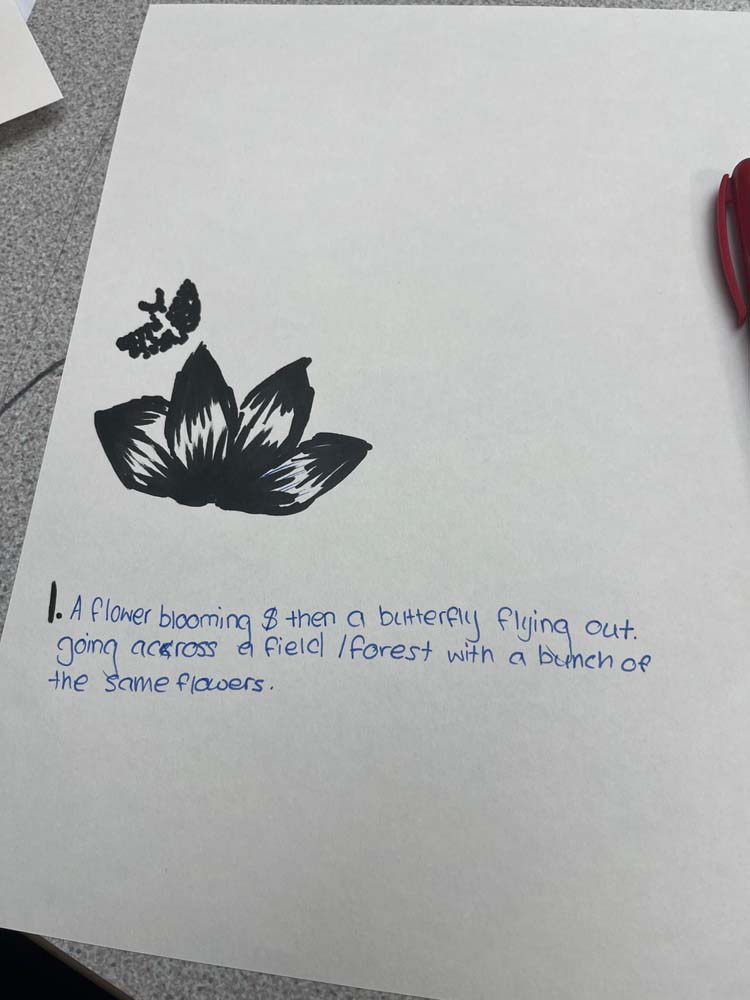 1. A flower blooming & then a butterfly flying out.
going accross a field / forest with a bunch of
the same flowers.